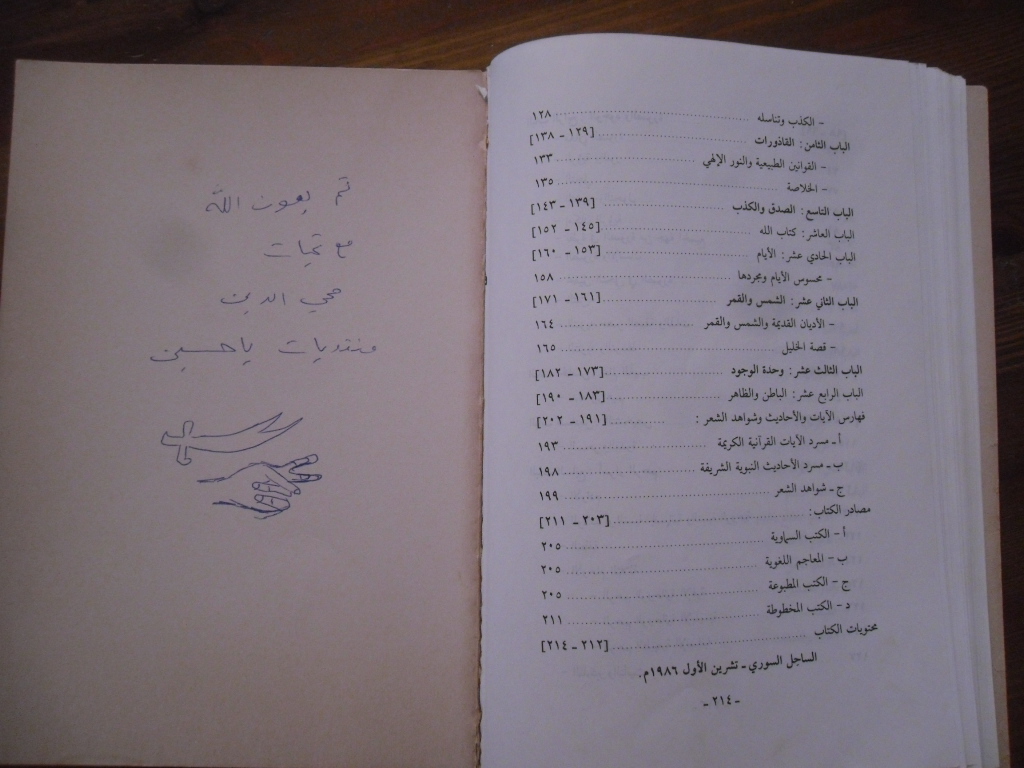 - الكذب وتناسله ........ ١٢٨
الباب الثامن: القاذورات ........ [١٢٩ - ١٣٨]
- القوانين الطبيعية والنور الإلهي ........ ١٣٣
- الخلاصة ........ ١٣٥
الباب التاسع: الصدق والكذب ........ [١٣٩ - ١٤٣]
الباب العاشر: كتاب الله ........ [١٤٥ - ١٥٢]
الباب الحادي عشر: الأيام ........ [١٥٣ - ١٦٠]
- محسوس الأيام ومجردها ........ ١٥٨
الباب الثاني عشر: الشمس والقمر ........ [١٦١ - ١٧١]
- الأديان القديمة والشمس والقمر ........ ١٦٤
- قصة الخليل ........ ١٦٥
الباب الثالث عشر: وحدة الوجود ........ [١٧٣ - ١٨٢]
الباب الرابع عشر: الباطن والظاهر ........ [١٨٣ - ١٩٠]
فهارس الآيات والأحاديث وشواهد الشعر: ........ [١٩١ - ٢٠٢]
أ - مسرد الآيات القرآنية الكريمة ........ ١٩٣
ب - مسرد الأحاديث النبوية الشريفة ........ ١٩٨
ج - شواهد الشعر ........ ١٩٩
مصادر الكتاب: ........ [٢٠٣ - ٢١١]
أ - الكتب السماوية ........ ٢٠٥
ب - المعاجم اللغوية ........ ٢٠٥
ج - الكتب المطبوعة ........ ٢٠٥
د - الكتب المخطوطة ........ ٢١١
محتويات الكتاب ........ [٢١٢ - ٢١٤]
الساجل السوري - تشرين الأول ١٩٨٦م.
- ٢١٤ -
تم بعون الله
مع تحيات
محي الدين
منتديات ياحسين